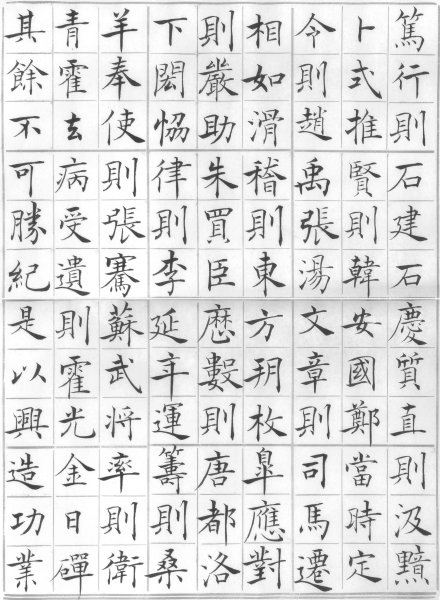 篤行則石建石慶質直則汲黯
卜式推賢則韓安國鄭當時定
令則趙禹張湯文章則司馬遷
相如滑稽則東方朔枚皐應對
則嚴助朱買臣厯數則唐都洛
下閎恊律則李延年運籌則桑
羊奉使則張騫蘇武將率則衛
青霍去病受遺則霍光金日磾
其餘不可勝紀是以興造功業